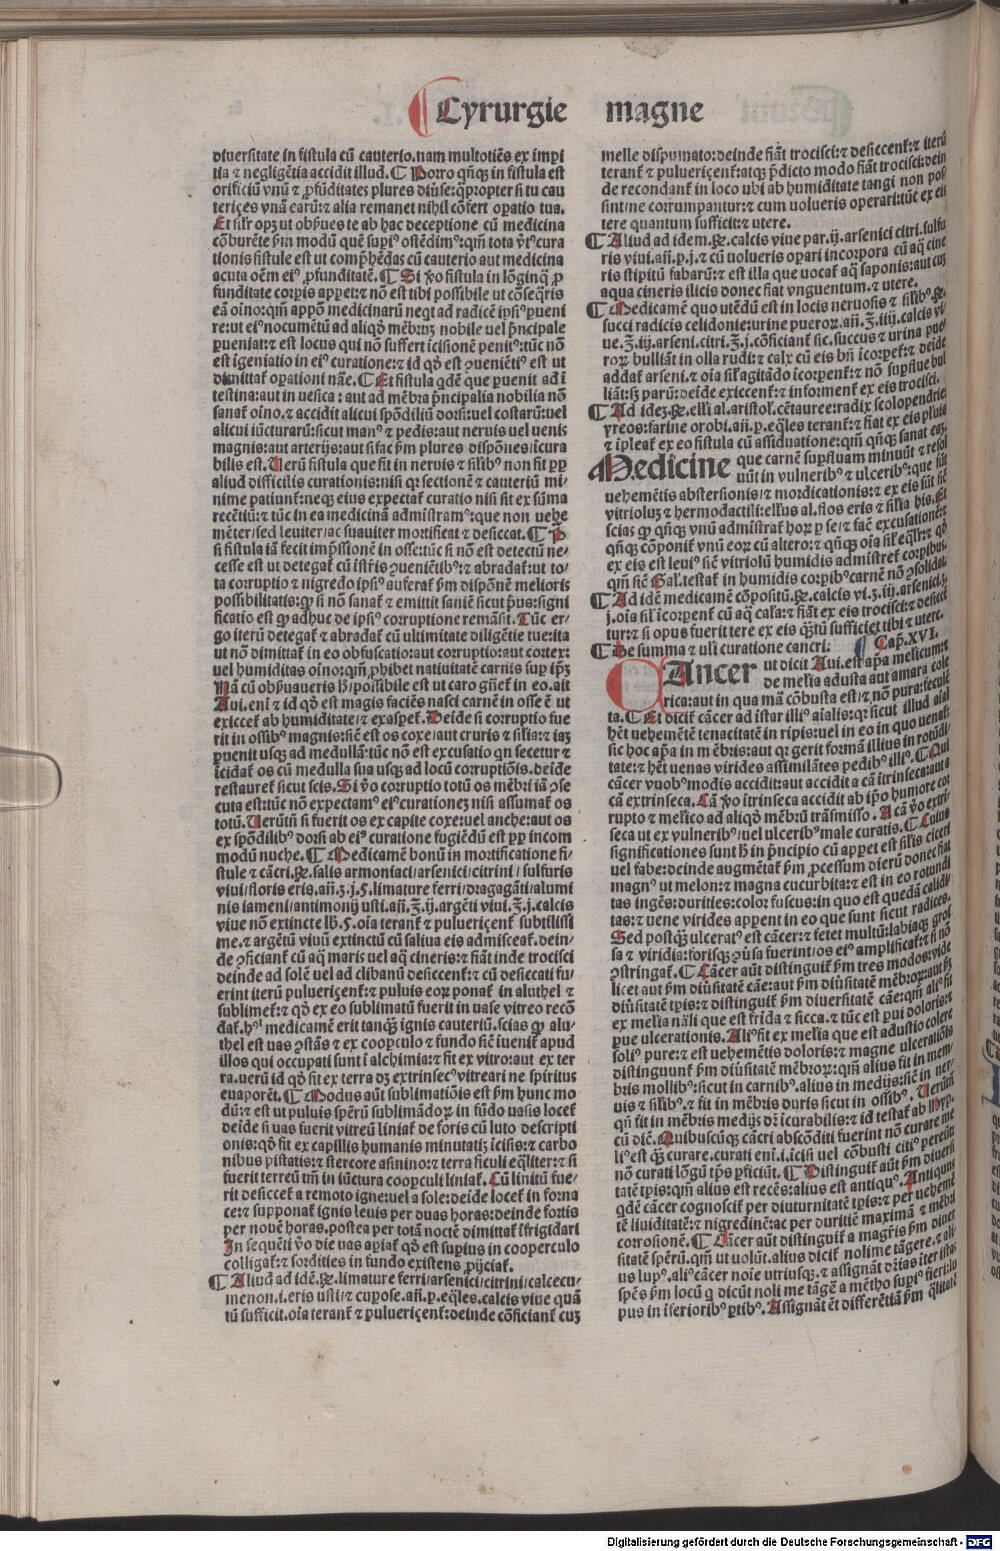 Cyrurgie magne
diuersitate in fistula cū cauterio.nam multotiēs ex impi
tia ⁊ negligētia accidit illud. ¶ Porro qn̄qꝫ in fistula est
orificiū vnū ⁊ ꝓfūditates plures diuse:
teriçes vnā earū:⁊ alia remanet nihil cōfert oꝑatio tua.
te ab hac deceptione cū medicina
cōburēte ꝑm modū quē supiꝰ ostēdimꝰ:qm̄ tota
tionis fistule est ut comp̄hēdas cū cauterio aut medicina
acuta oēm eiꝰ ꝓfunditatē. ¶ Si ꝟo fistula in lōginq̄ ꝓ
funditate corꝑis appet:⁊ nō est tibi possibile ut cōseq̄ris
eā oino:qm̄ appō medicinarū neqꝫ ad radicē ipsiꝰ pueni
re:ut eiꝰ nocumētū ad aliqđ mēbꝛuꝫ nobile uel p̄ncipale
ꝑueniat:⁊ est locus qui nō suffert īcisionē penitꝰ:tūc nō
est īgeniatio in eiꝰ curatione:⁊ id qđ est ꝯueniētiꝰ est ut
dimittat̄ oꝑationi nāe. ¶ Et fistula qdē que ꝑuenit ad ī
testina:aut in uesica : aut ad mēbra p̄ncipalia nobilia nō
sanat̄ oīno.⁊ accidit alicui spōdiliū dorsi:uel costarū:uel
alicui iūcturarū:sicut manꝰ ⁊ pedis:aut neruis uel uenis
magnis:aut arterijs:aut si fac ꝑm plures dispōnes/icura
bilis est. Uerū fistula que fit in neruis ⁊ silibꝰ non fit ꝑꝑ
aliud difficilis curationis:nisi qꝛ sectionē ⁊ cauteriū mi⸗
nime patiunt̄:neqꝫ eius expectat̄ curatio nisi fit ex sūma
recētiū:⁊ tūc in ea medicinā admīstramꝰ:que non uehe
mēter/sed leuiter/ac suauiter mortificat ⁊ desiccat. ¶
si fistula iā fecit imp̄ssionē in osse:tūc si nō est detectū ne⸗
cesse est ut detegat̄ cū īstr̄is ꝯueniētibꝰ:⁊ abradat̄:ut to⸗
ta corruptio ⁊ nigredo ipsiꝰ auferat̄ ꝑm dispōnē melioris
possibilitatis:ꝙ si nō sanat̄ ⁊ emittit saniē sicut p̄us:signi
ficatio est ꝙ adhuc de ipsiꝰ corruptione remāsit. Tūc er⸗
go iterū detegat̄ ⁊ abradat̄ cū ultimitate diligētie tue:ita
ut nō dimittat̄ in eo obfuscatio:aut corruptio:aut cortex:
uel humiditas oīno:qm̄ ꝓhibet natiuitatē carnis sup ipꝫ
Nā cū obꝑuaueris possibile est ut caro gn̄et̄ in eo.ait
Aui.enī ⁊ id qđ est magis faciēs nasci carnē in osse ē ut
exiccet̄ ab humiditate/⁊ exaspet̄. Deide si corruptio fue
rit in ossibꝰ magnis:sicē est os coxe/aut cruris ⁊ silia:⁊ iaꝫ
ꝑuenit usqꝫ ad medullā:tūc nō est excusatio qn secetur ⁊
īcidat̄ os cū medulla sua usqꝫ ad locū corruptiōis.deide
restauret̄ sicut scis. Si ꝟo corruptio totū os mēbri iā ꝯse
cuta est:tūc nō expectamꝰ eiꝰ curationeꝫ nisi assumat̄ os
totū. Uerūtn̄ si fuerit os ex capite coxe:uel anche:aut os
ex spōdilibꝰ dorsi ab eiꝰ curatione fugiēdū est ꝑꝑ incom
modū nuche. ¶ Medicamē bonū in mortificatione fi⸗
stule ⁊ cācri.℞.salis armoniaci/arsenici/citrini / sulfuris
viui/floris eris.añ.ʒ.j.ß.limature ferri/dragagāti/alumi
nis iameni/antimonij usti.añ.℥.ij.argēti viui.℥.j.calcis
viue nō extincte lb.ß.oīa terant̄ ⁊ pulueriçent̄ subtilissi
me.⁊ argētū viuū extinctū cū saliua eis admisceat̄.dein⸗
de ꝯficiant̄ cū aq̄ maris uel aq̄ cineris:⁊ fiāt inde trocisci
deinde ad solē uel ad clibanū desiccent̄:⁊ cū desiccati fu⸗
erint iterū pulueriçent̄:⁊ puluis eoꝝ ponat̄ in aluthel ⁊
sublimet̄:⁊ qđ ex eo sublimatū fuerit in uase vitreo recō
dat̄. medicamē erit tanq̄ꝫ ignis cauteriū.scias ꝙ alu⸗
thel est uas ꝯstās ⁊ ex cooꝑculo ⁊ fundo sicē īuenit̄ apud
illos qui occupati sunt ī alchimia:⁊ fit ex vitro:aut ex ter
ra.uerū id qđ fit ex terra dꝫ extrinsecꝰ vitreari ne spiritus
euaporēt. ¶ Modus aūt sublimatiōis est ꝑm hunc mo
dū:⁊ est ut puluis spērū sublimādoꝝ in fūdo uasis locet̄
deīde si uas fuerit vitreū liniat̄ de foris cū luto descripti
onis:qđ fit ex capillis humanis minutatiꝫ īcisis:⁊ carbo
nibus pistatis:⁊ stercore asinino:⁊ terra ficuli eq̄liter:⁊ si
fuerit terreū tm̄ in iūctura cooꝑculi liniat̄. Cū linitū fue⸗
rit desiccet̄ a remoto igne:uel a sole:deide locet̄ in forna
ce:⁊ supponat̄ ignis leuis per duas horas:deinde fortis
per nouē horas.postea per totā noctē dimittat̄ īfrigidari
In sequēti ꝟo die uas apiat̄ qđ est supius in cooperculo
colligat̄:⁊ sordities in fundo existens ꝓijciat̄.
¶ Aliud ad idē.℞.limature ferri/arsenici/citrini/calcecu⸗
menon.i.eris usti/⁊ cuꝑose.añ.p.eq̄les.calcis viue quā
tū sufficit.oīa terant̄ ⁊ pulueriçent̄:deinde cōficiant̄ cuꝫ
melle dispumato:deinde fiāt trocisci:⁊ desiccent̄:⁊ iterū
terant̄ ⁊ pulueriçent̄:atqꝫ p̄dicto modo fiāt trocisci:dein
de recondant̄ in loco ubi ab humiditate tangi non pos⸗
sint/ne corrumpantur:⁊ cum uolueris operari:tūc ex eis
tere quantum sufficit:⁊ utere.
¶ Aliud ad idem.℞.calcis viue par.ij.arsenici citri.sulfu
ris viui.añ.p.j.⁊ cū uolueris oꝑari incorpora cū aq̄ cine
ris stipitū fabarū:⁊ est illa que uocat̄ aq̄ saponis:aut cuꝫ
aqua cineris ilicis donec fiat vnguentum.⁊ utere.
¶ Medicamē quo utēdū est in locis neruosis ⁊ silibꝰ.℞.
succi radicis celidonie:urine pueroꝝ.añ.℥.iiij.calcis vi
ue.℥.iij.arseni.citri.℥.j.cōficiant̄ sic.succus ⁊ urina pue
roꝝ bulliāt in olla rudi:⁊ calx cū eis bn̄ īcorpet̄:⁊ deide
addat̄ arseni.⁊ oīa sil̄ agitādo īcorpent̄:⁊ nō supflue bul
liāt:sꝫ parū:deide exiccent̄:⁊ informent̄ ex eis trocisci.
¶ Ad ideꝫ.℞.elli al.aristol.cētauree:radix scolopendrie
yreos:farine orobi.añ.p.eq̄les terant̄:⁊ fiat ex eis pluis
⁊ īpleat̄ ex eo fistula cū assiduatione:qm̄ qn̄qꝫ sanat eaꝫ.
Medicine que carnē supfluam minuūt ⁊ resol
uūt in vulneribꝰ ⁊ ulceribꝰ:que sūt
uehemētis abstersionis/⁊ mordicationis:⁊ ex eis sūt sicē
vitriolū ⁊ hermodactili:ell'us al.flos eris ⁊ silia his. Et
scias ꝙ qn̄qꝫ vnū admīstrat̄ hoꝝ p se/⁊ facē excusationē:⁊
qn̄qꝫ cōponit̄ vnū eoꝝ cū altero:⁊ qn̄qꝫ oīa sil̄ eq̄lr:⁊ qđ
ex eis est leuiꝰ sicē vitriolū humidis admīstret̄ corpibus.
qm̄ sicē Gal.testat̄ in humidis corpibꝰ carnē nō ꝯsolidat.
¶ Ad idē medicamē cōpositū.℞.calcis vi.ʒ.iij.arsenici.ʒ.
j.oīa sil̄ īcorpent̄ cū aq̄ cal'a:⁊ fiāt ex eis trocisci:⁊ desicca
tur:⁊ si opus fuerit tere ex eis q̄ꝫtū sufficiet tibi ⁊ utere.
¶ De summa ⁊ uli curatione cancri. ¶ Cap. XVI.
CAncer ut dicit Aui.est ap̄a melicum:⁊
de mel'ia adusta aut amara cole
rica:aut in qua mā cōbusta est/⁊ nō pura:fecule
ta. ¶ Et dicit̄ cācer ad īstar illiꝰ aialis:qꝛ sicut illud aial
hēt uehemētē tenacitatē in ripis:uel in eo in quo uenat̄:
sic hoc ap̄a in mēbris:aut qꝛ gerit formā illius in rotūdi
tate:⁊ hēt uenas virides assimilātes pedibꝰ illiꝰ. ¶ Qui
cācer vuobꝰ modis accidit:aut accidit a cā ītrinseca:aut a
cā extrinseca. Cā ꝟo ītrinseca accidit ab ip̄o humore cor
rupto ⁊ mel'ico ad aliqđ mēbrū trāsmisso. A cā ꝟo extri
seca ut ex vulneribꝰ/uel ulceribꝰ male curatis. ¶ Cuius
significationes sunt in p̄ncipio cū appet est silis ciceri
uel fabe:deinde augmētat̄ ꝑm ꝓcessum dierū donec fiat
magnꝰ ut melon:⁊ magna cucurbita:⁊ est in eo rotundi
tas ingēs:durities:color fuscus:in quo est quedā calidi
tas:⁊ uene virides appent in eo que sunt sicut radices.
Sed postq̄ꝫ ulceratꝰ est cācer:⁊ fetet multū:labiaqꝫ gros
sa ⁊ viridia:forisqꝫ ꝯuersa fuerint/os eiꝰ amplificat̄:⁊ si nō
ꝯstringat̄. ¶ Cācer aūt distinguit̄ ꝑm tres modos:vide
licet aut ꝑm diūsitatē cāe:aut ꝑm diūsitatē mēbroꝝ:aut ꝑm
diūsitatē tꝑis:⁊ distinguit̄ ꝑm diuersitatē cāe:qm̄ aliꝰ fit
ex mel'ia nāli que est fr̄ida ⁊ sicca.⁊ tūc est pui doloris:⁊
pue ulcerationis. Aliꝰ fit ex mel'ia que est adustio colere
soliꝰ pure:⁊ est uehemētis doloris:⁊ magne ulcerationis
distinguunt̄ ꝑm diūsitatē mēbroꝝ:qm̄ alius fit in mem⸗
bris mollibꝰ:sicut in carnibꝰ.alius in medijs:sicē in ner
uis ⁊ silibꝰ.⁊ fit in mēbris duris sicut in ossibꝰ. Uerum
qn̄ fit in mēbris medijs dꝛ īcurabilis:⁊ id testat̄ ab hyp.
cū dīc. Quibuscūqꝫ cācri abscōditi fuerint nō curare me
liꝰ est q̄ꝫ curare.curati enī.i.īcisi uel cōbusti citiꝰ pereūt:
nō curati lōgū tp̄s ꝑficiūt. ¶ Distinguit̄ aūt ꝑm diuersi
tatē tꝑis:qm̄ alius est recēs:alius est antiquꝰ. Antiquus
qdē cācer cognoscit̄ per diuturnitatē tꝑis:⁊ per uehemē
tē liuiditatē:⁊ nigredinē:ac per duritiē maximā ⁊ mēbri
corrosionē. ¶ Cācer aūt distinguit̄ a magr̄is ꝑm diuer
sitatē spērū.qm̄ ut uolūt.alius dicit̄ nolime tāgere.⁊ ali
us lupꝰ.aliꝰ cācer noīe utriusqꝫ.⁊ assignāt dr̄ias iter istas
spēs ꝑm locū q dicūt noli me tāgē a mētho supiꝰ fieri:lu
pus in īferioribꝰ ꝑtibꝰ. Assignāt ēt differētiā ꝑm q̄litatē
Digitalisierung gefördert durch die Deutsche Forschungsgemeinschaft - DFG